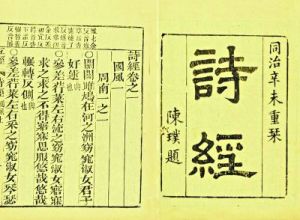 同治辛未重栞
詩經
陳璞題
詩經卷之一
國風一
周南一之一
關關雎鳩在河之洲窈窕淑女君子
好逑
參差荇菜左右流之窈窕淑女寤寐
求之求之不得寤寐思服悠哉悠哉
輾轉反側
參差荇菜左右采之窈窕淑女琴瑟